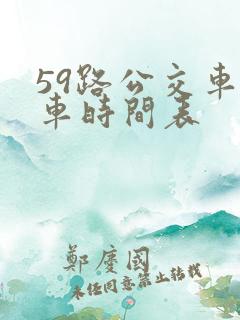 59路公交車
車時間表
鄭慶國
未经同意禁止转载